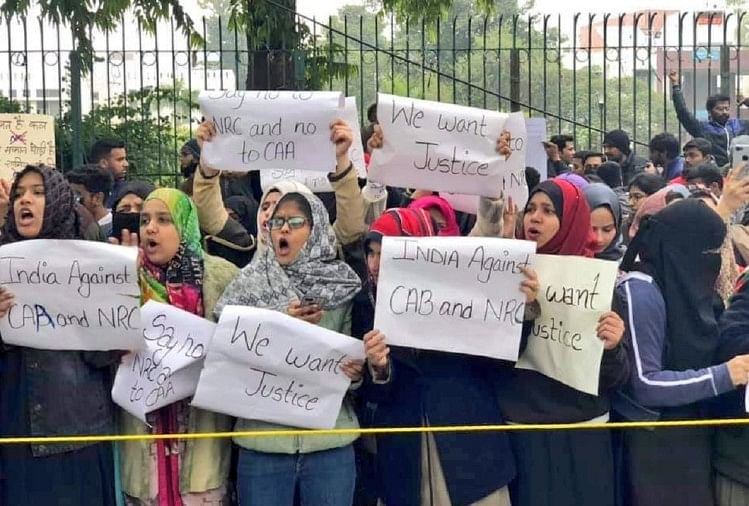 Say no to
NRC and no
to CAA
We want
Justice
India Against
CAB and NRC
Say no
NRC a
CAA
We want
Justice
INDIA Against
CAB and NRC
want
Justice